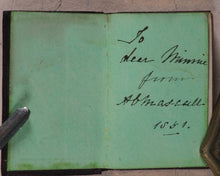 To
dear Minnie
from
A B Mascall
1881.